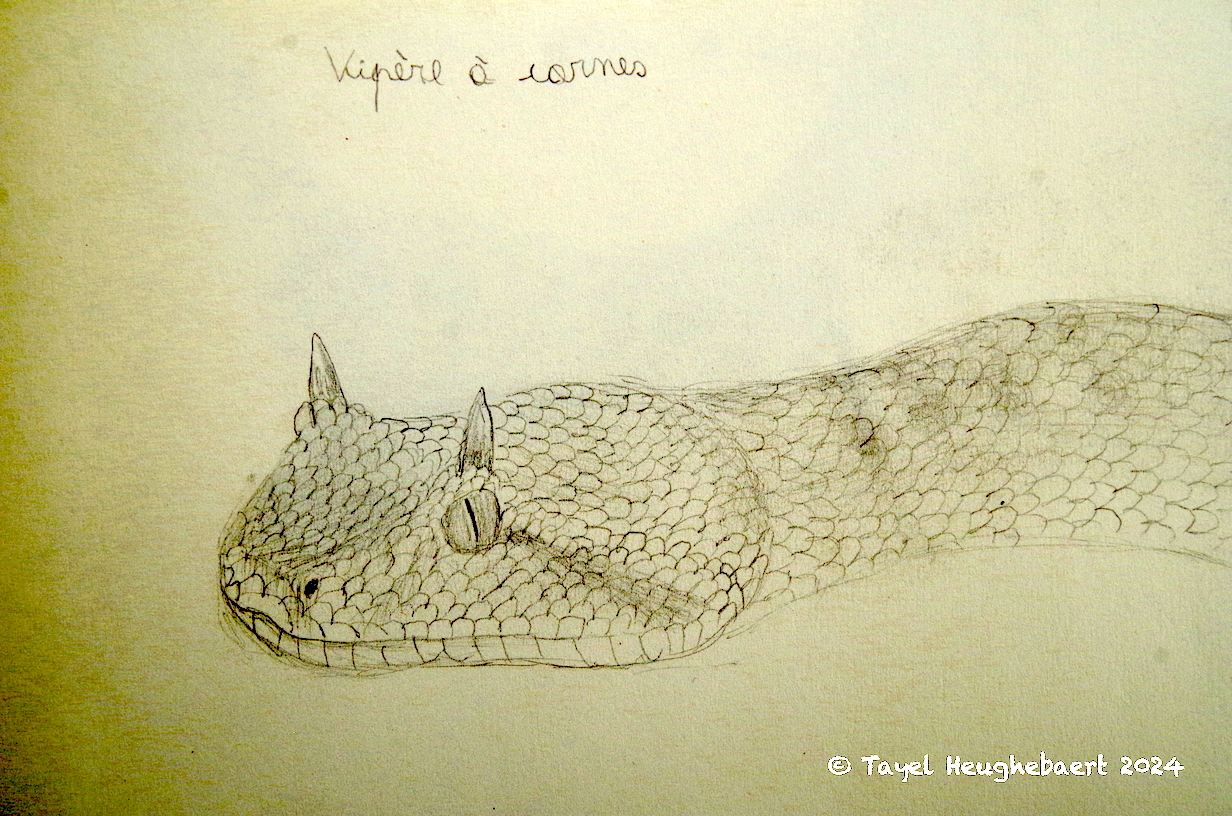 Vipère à cornes
© Tayel Heughebaert 2024